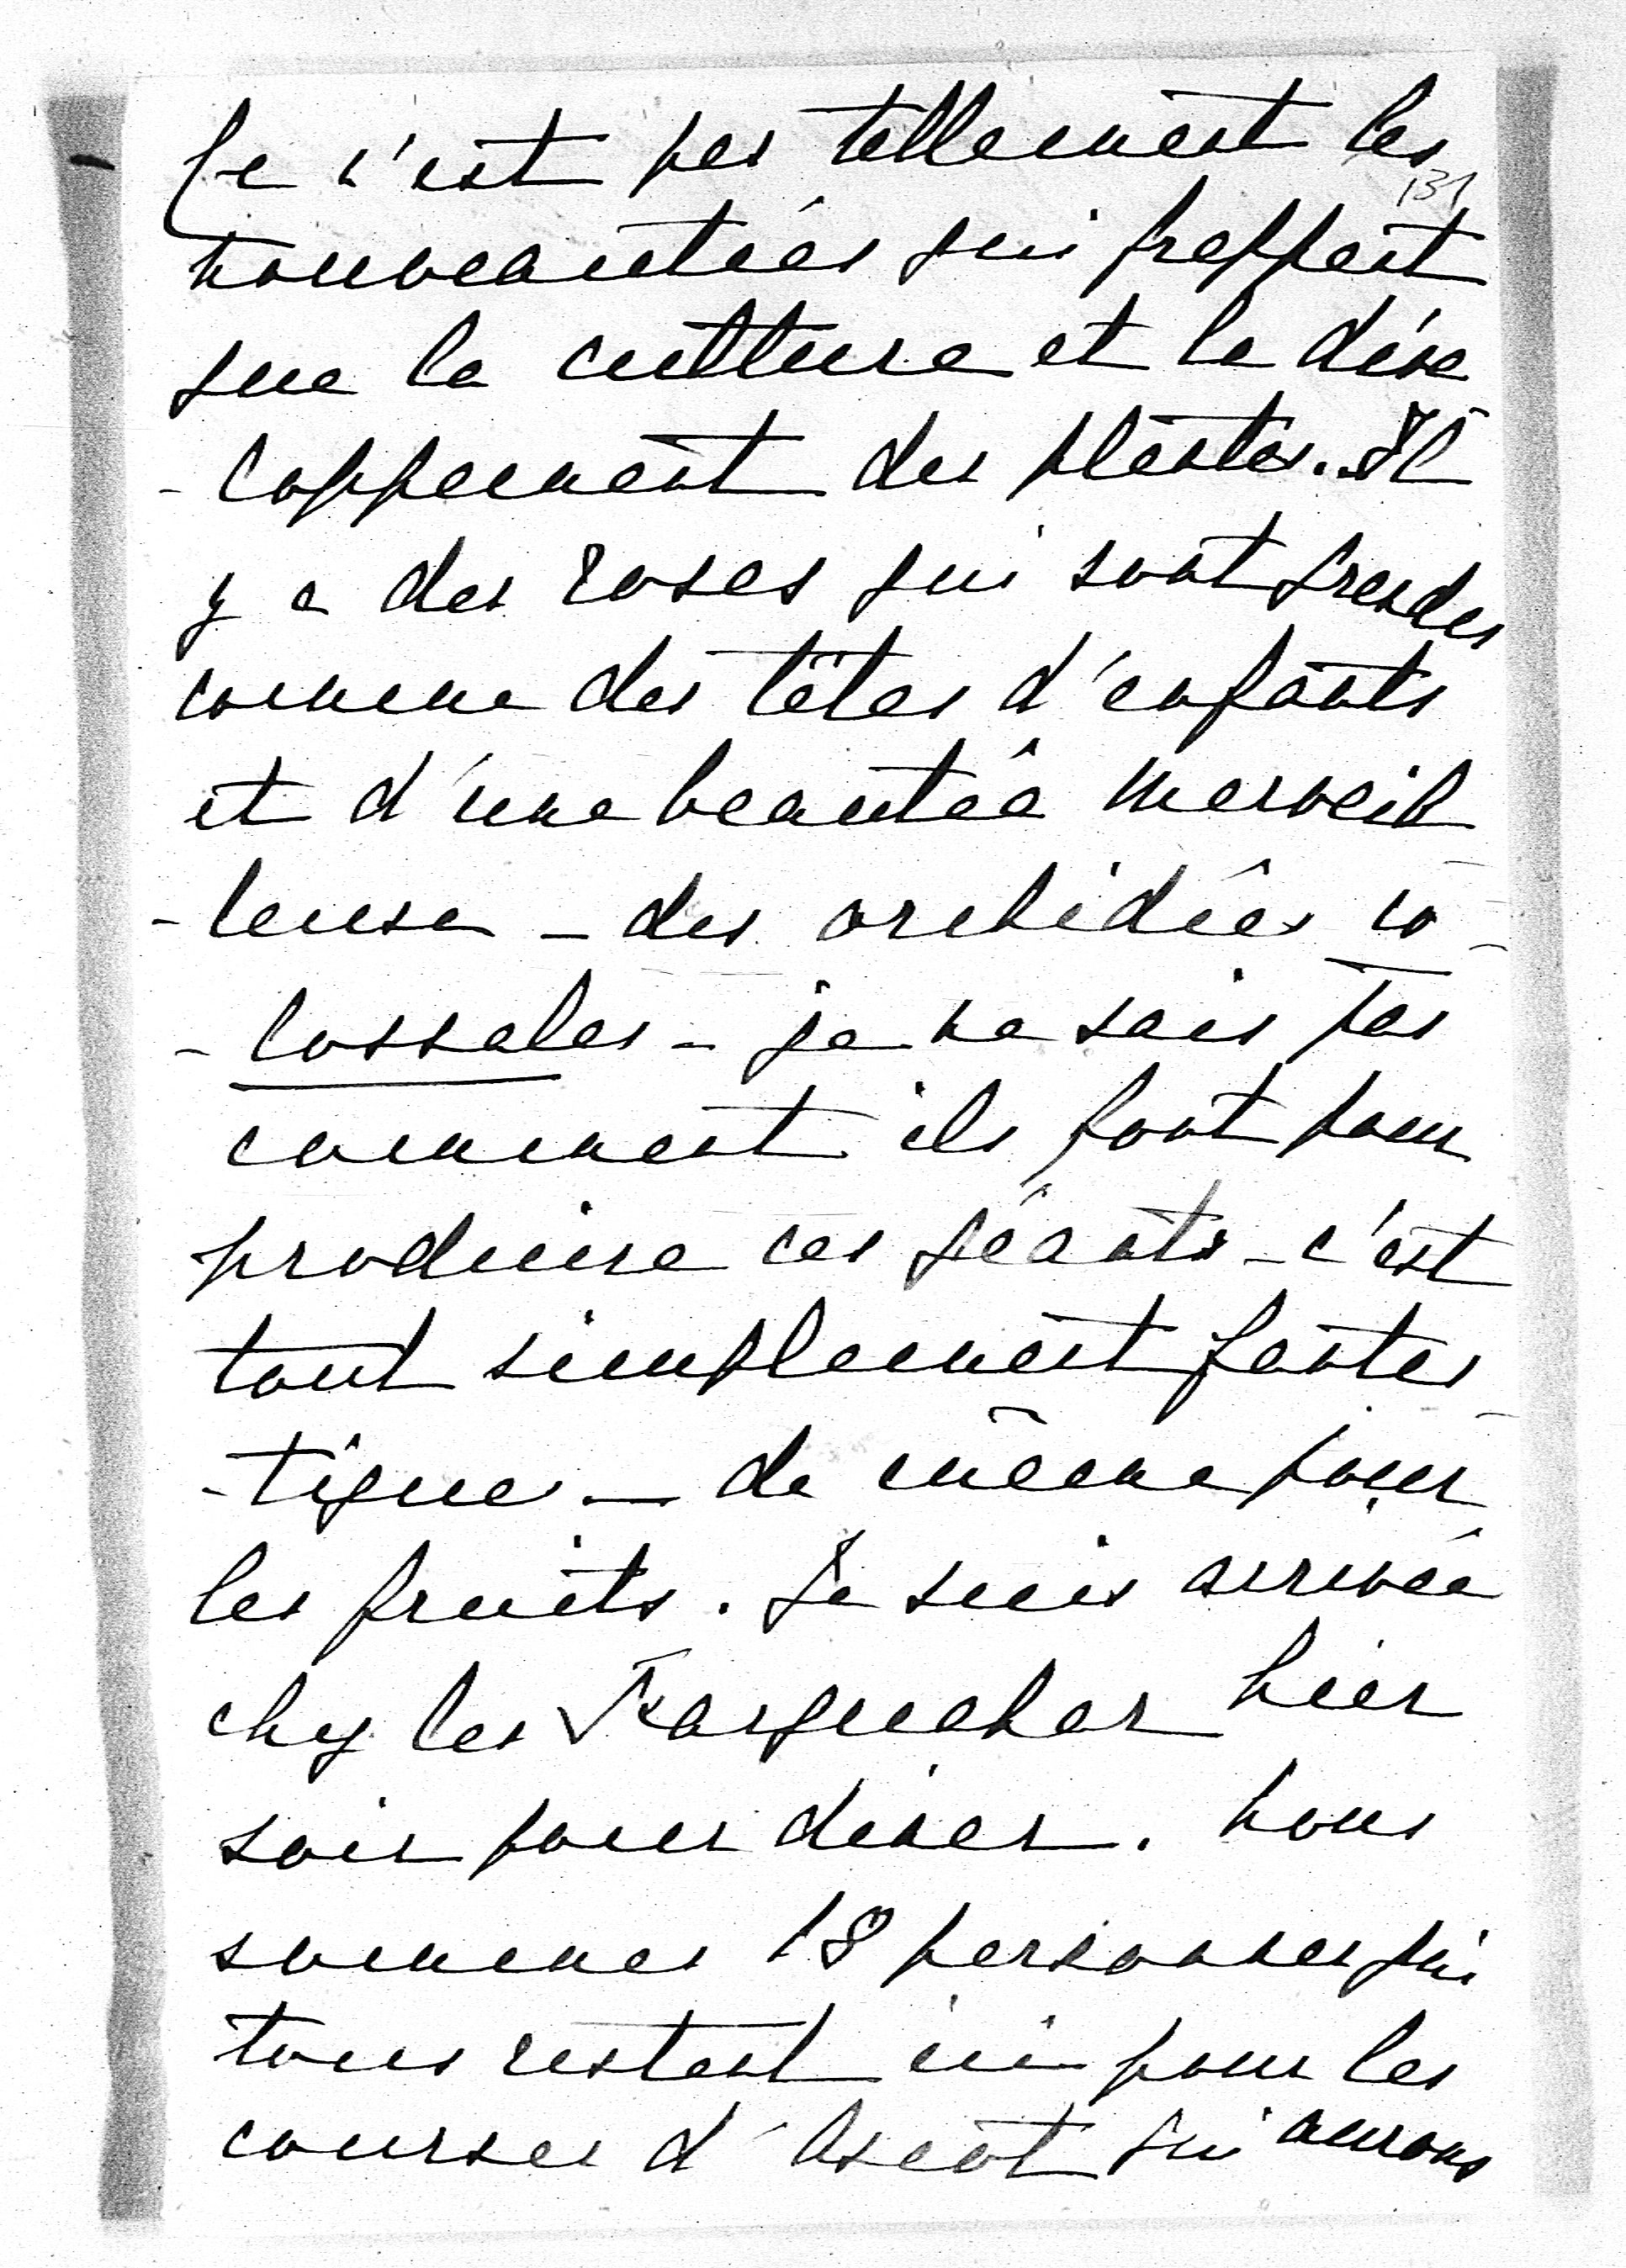 Ce n'est pas tellement les
131
nouveautées qui frappent
que la culture et le déve
-loppement des plantes. Il
y a des roses qui sont grandes
comme des têtes d'enfants
et d'une beautée merveil
-leuse - des orchidées co-
-lossales - je ne sais pas
comment ils font pour
produire ces géants - c'est
tout simplement fantas
-tique - de même pour
les fruits. Je suis arrivée
chez les Farquehar hier
soir pour diner. nous
sommes 18 personnes qui
tous restent ici pour les
courses d'Ascot qui aurons